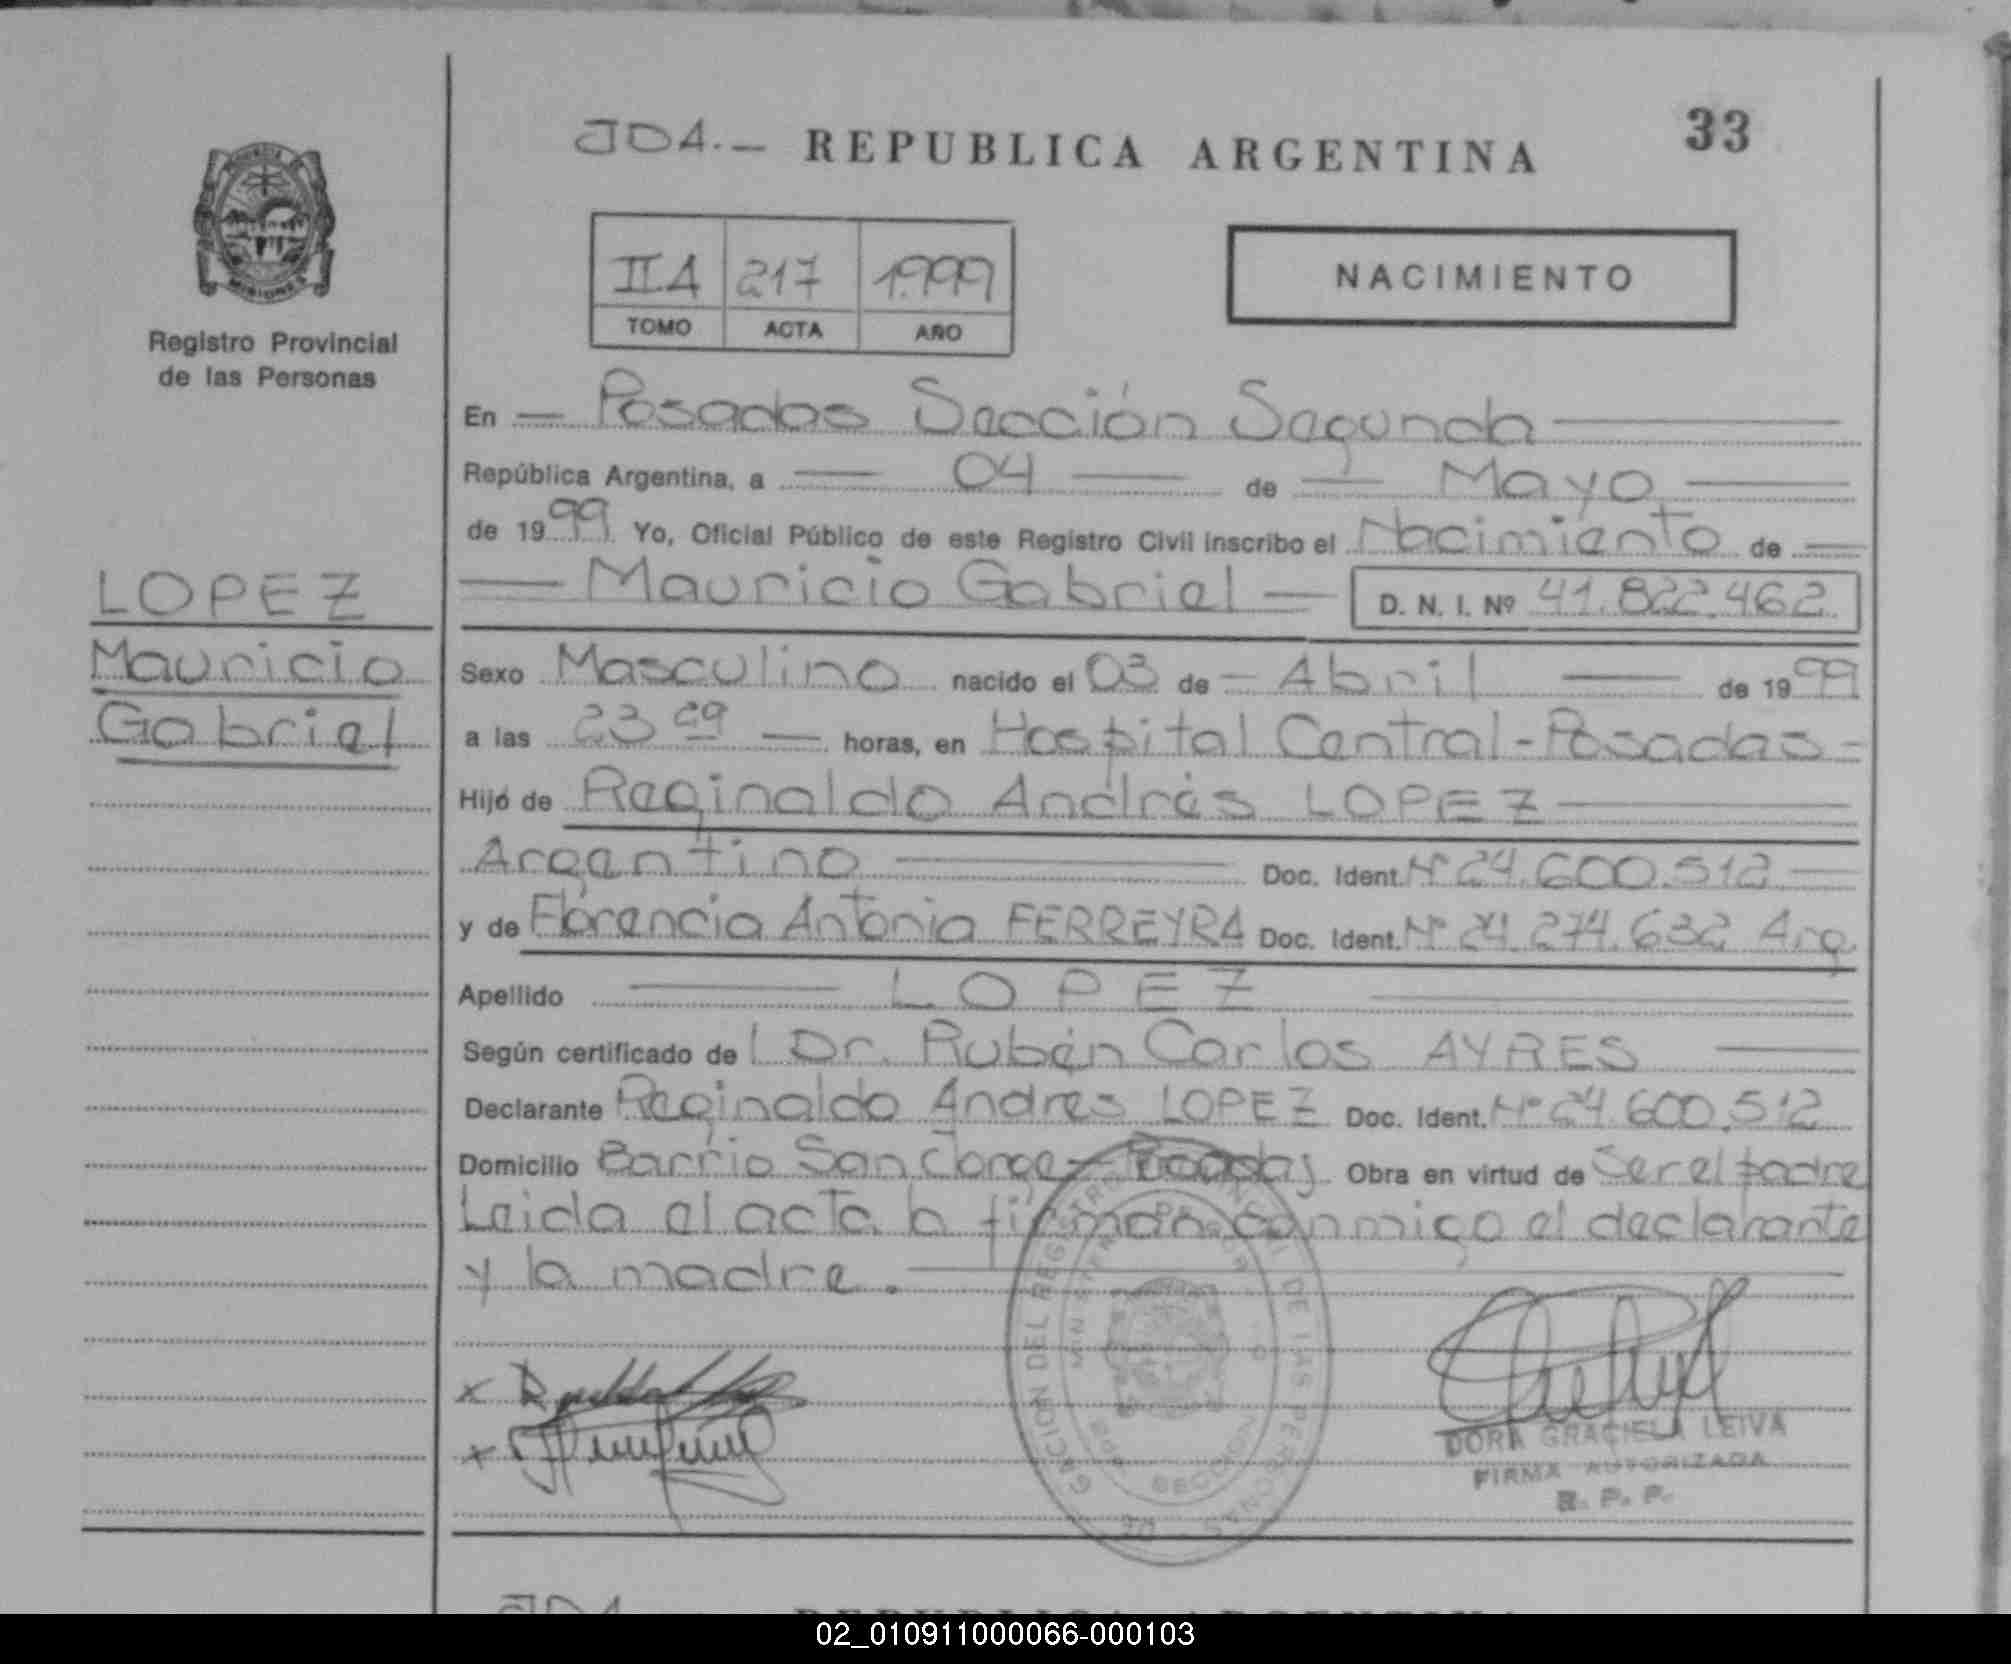 JDA.- REPUBLICA ARGENTINA
33
MISIONES
Registro Provincial
de las Personas
II A 217 1.999
TOMO ACTA AÑO
NACIMIENTO
En Posadas Sección Segunda
República Argentina, a 04 de Mayo
de 1999 Yo, Oficial Público de este Registro Civil inscribo el Nacimiento de
Mauricio Gabriel D. N. I. Nº 41.822.462
LOPEZ
Mauricio
Gabriel
Sexo Masculino nacido el 03 de Abril de 1999
a las 23 horas, en Hospital Central - Posadas
Hijo de Reginaldo Andrés LOPEZ
Argentino Doc. Ident. Nº 24.600.512
y de Florencia Antonia FERREYRA Doc. Ident. Nº 24.274.632 Arg.
Apellido LOPEZ
Según certificado del Dr. Rubén Carlos AYRES
Declarante Reginaldo Andres LOPEZ Doc. Ident. Nº 24.600.512
Domicilio Barrio San Jorge - Posadas Obra en virtud de Ser el padre
Leida el acta la firman conmigo el declarante
y la madre.
DORA GRACIELA LEIVA
FIRMA AUTORIZADA
R. P. P.
02_010911000066-000103